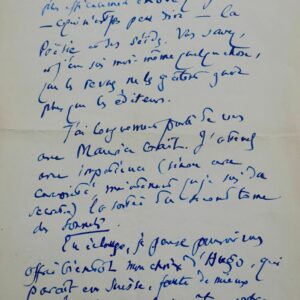 plus efficacement encore,
— qui n'est pas peu dire — la
Poésie et ses secrets. Vous savez,
et j'en sais moi-même quelque chose,
que les revues ne le gâtent guère
plus que les éditeurs.
J'ai longuement parlé de vous
avec Maurice J'attends
avec impatience (sinon avec
curiosité, maintenant que je suis du
secret) la sortie du second tome
des Sonnets.
En échange, je pense pouvoir vous
offrir bientôt mon choix d'Hugo, qui
paraît en Suisse, faute de mieux